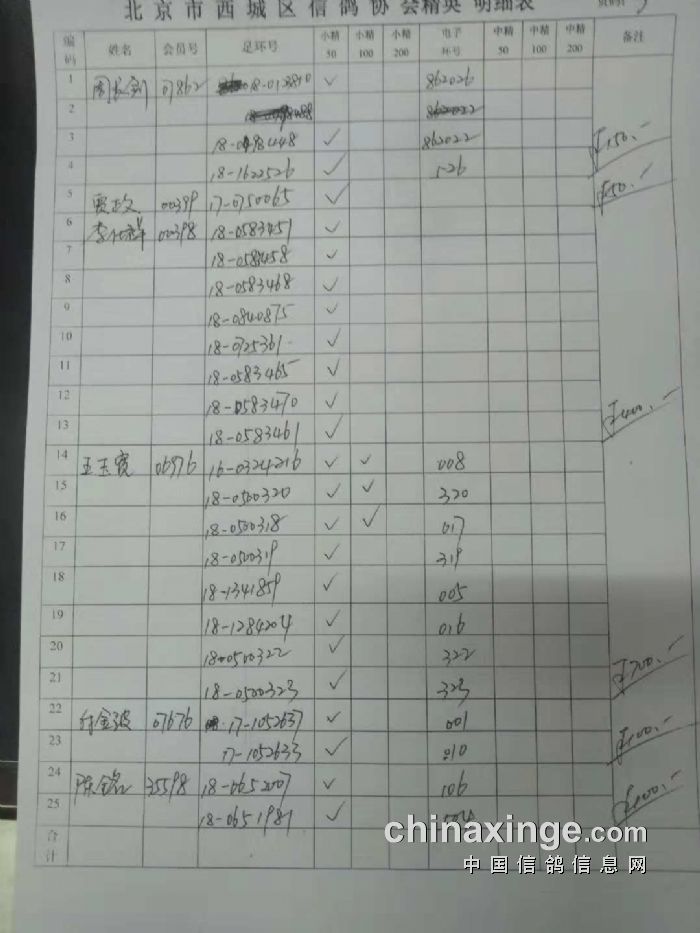 北京市西城区信鸽协会精英 明细表
编码 姓名 会员号 足环号 小精50 小精100 小精200 电子环号 中精50 中精100 中精200 备注
1 07862 ✓ 862026
2
3 ✓ 862022 ¥150.-
4 18-1622526 ✓ 526
5 贾政文 00399 17-0750065 ✓ ¥50.-
6 00398 18-0583451 ✓
7 18-0583458 ✓
8 18-0583468 ✓
9 18-0840875 ✓
10 18-0725361 ✓
11 18-0583465 ✓
12 18-0583470 ✓
13 18-0583461 ✓ ¥400.-
14 王玉宽 06976 16-0324216 ✓ ✓ 008
15 18-0500320 ✓ ✓ 320
16 18-0500318 ✓ ✓ 017
17 18-0500319 ✓ 319
18 18-1341859 ✓ 005
19 18-1284204 ✓ 016
20 18-0500322 ✓ 322
21 18-0500323 ✓ 323 ¥700.-
22 07676 17-1052637 ✓ 001
23 17-1052633 ✓ 010 ¥100.-
24 35598 18-0652007 ✓ 106
25 18-0651981 ✓ ¥100.-
合计
chinaxinge.com
中国信鸽信息网